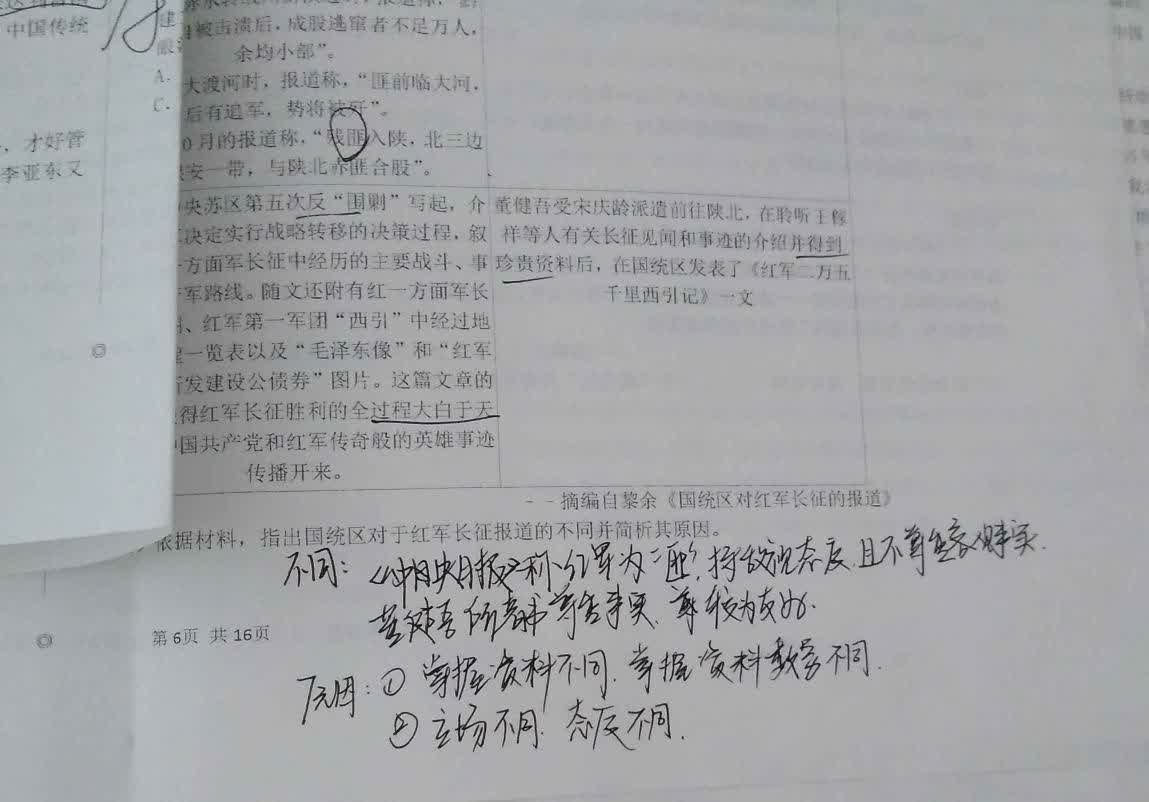 中国传统
被击溃后，成股逃窜者不足万人，
余均小部”。
A.
大渡河时，报道称，“匪前临大河，
C.
后有追军，势将被歼”。
0月的报道称，“残匪入陕，北三边
安一带，与陕北赤匪合股”。
、才好管
李亚东又
央苏区第五次反“围剿”写起，介
决定实行战略转移的决策过程，叙
方面军长征中经历的主要战斗、事
军路线。随文还附有红一方面军长
、红军第一军团“西引”中经过地
一览表以及“毛泽东像”和“红军
发建设公债券”图片。这篇文章的
得红军长征胜利的全过程大白于天
中国共产党和红军传奇般的英雄事迹
传播开来。
董健吾受宋庆龄派遣前往陕北，在聆听王稼
祥等人有关长征见闻和事迹的介绍并得到
珍贵资料后，在国统区发表了《红军二万五
千里西引记》一文
--摘编自黎余《国统区对红军长征的报道》
依据材料，指出国统区对于红军长征报道的不同并简析其原因。
不同：《中央日报》称红军为“匪”，持敌视态度，且不尊重客观事实.
董健吾所著书尊重事实，较为友好.
第6页 共16页
原因：① 掌握资料不同，掌握资料数量不同.
② 立场不同，态度不同.